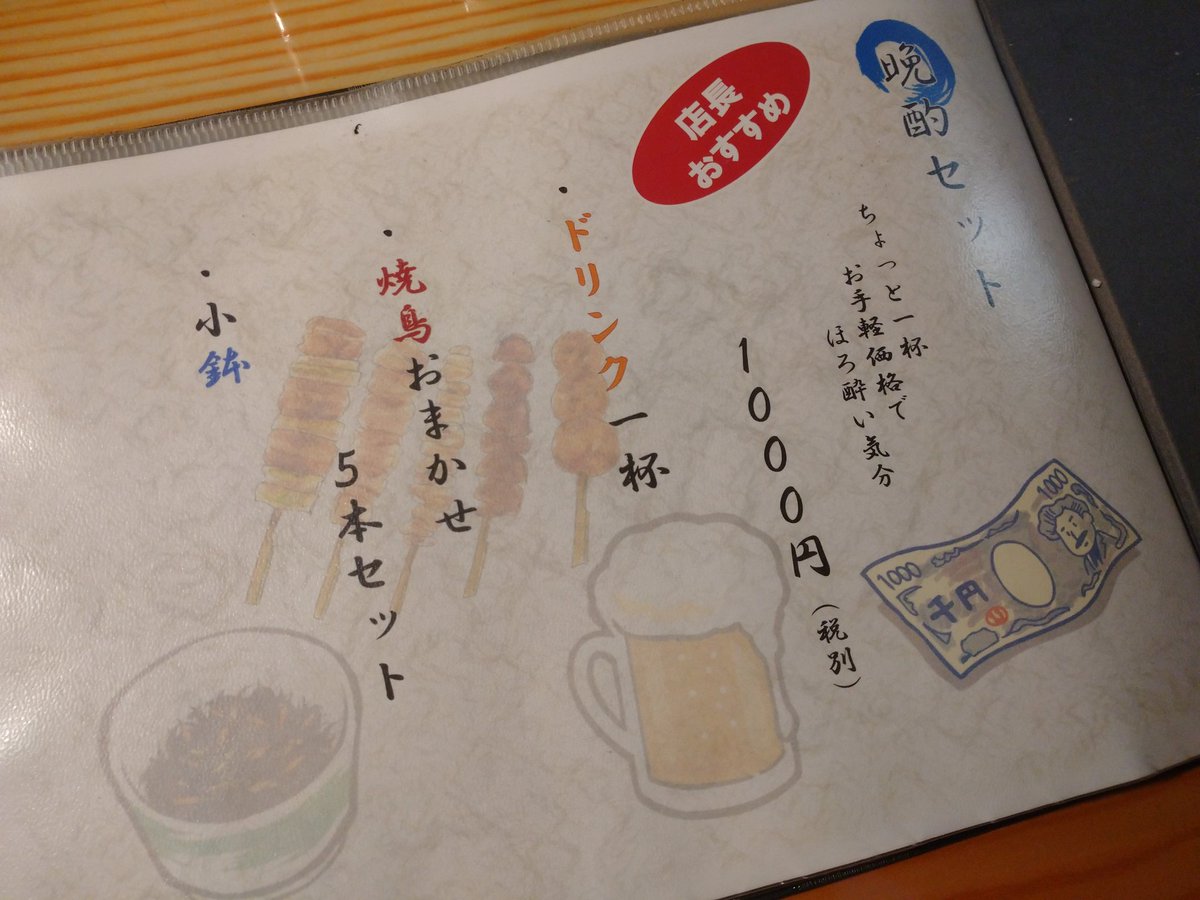 晩酌セット
店長
おすすめ
ちょっと一杯
お手軽価格で
ほろ酔い気分
1000円(税別)
・ドリンク一杯
・焼鳥おまかせ
5本セット
・小鉢
1000
千円
1000